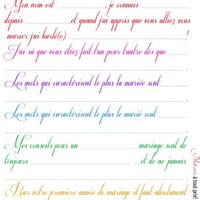 Mon nom est ............, je connais ............
depuis ............ et quand j'ai appris que vous alliez vous
marier j'ai hurlé(e) ............ !
J'ai su que vous étiez fait l'un pour l'autre dès que ............
Les mots qui caractérisent le plus la mariée sont ............
Les mots qui caractérisent le plus le marié sont ............
Mes conseils pour un ............ mariage sont de
toujours ............ et de ne jamais
Pour votre première année de mariage il faut absolument
à tout prix!